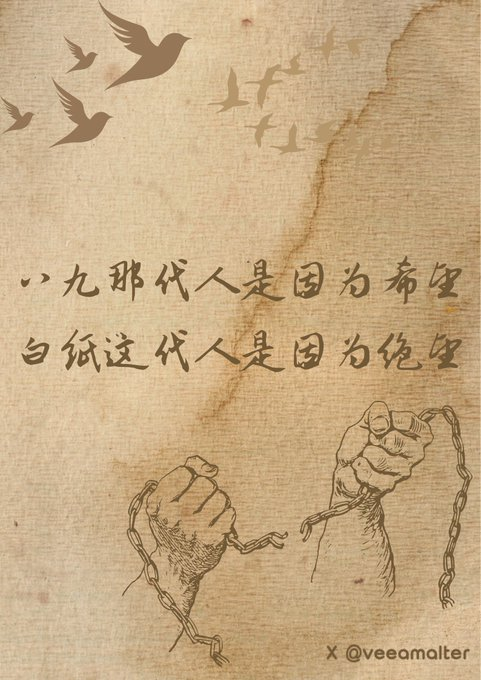 八九那代人是因为希望
白纸这代人是因为绝望
X @veeamalter